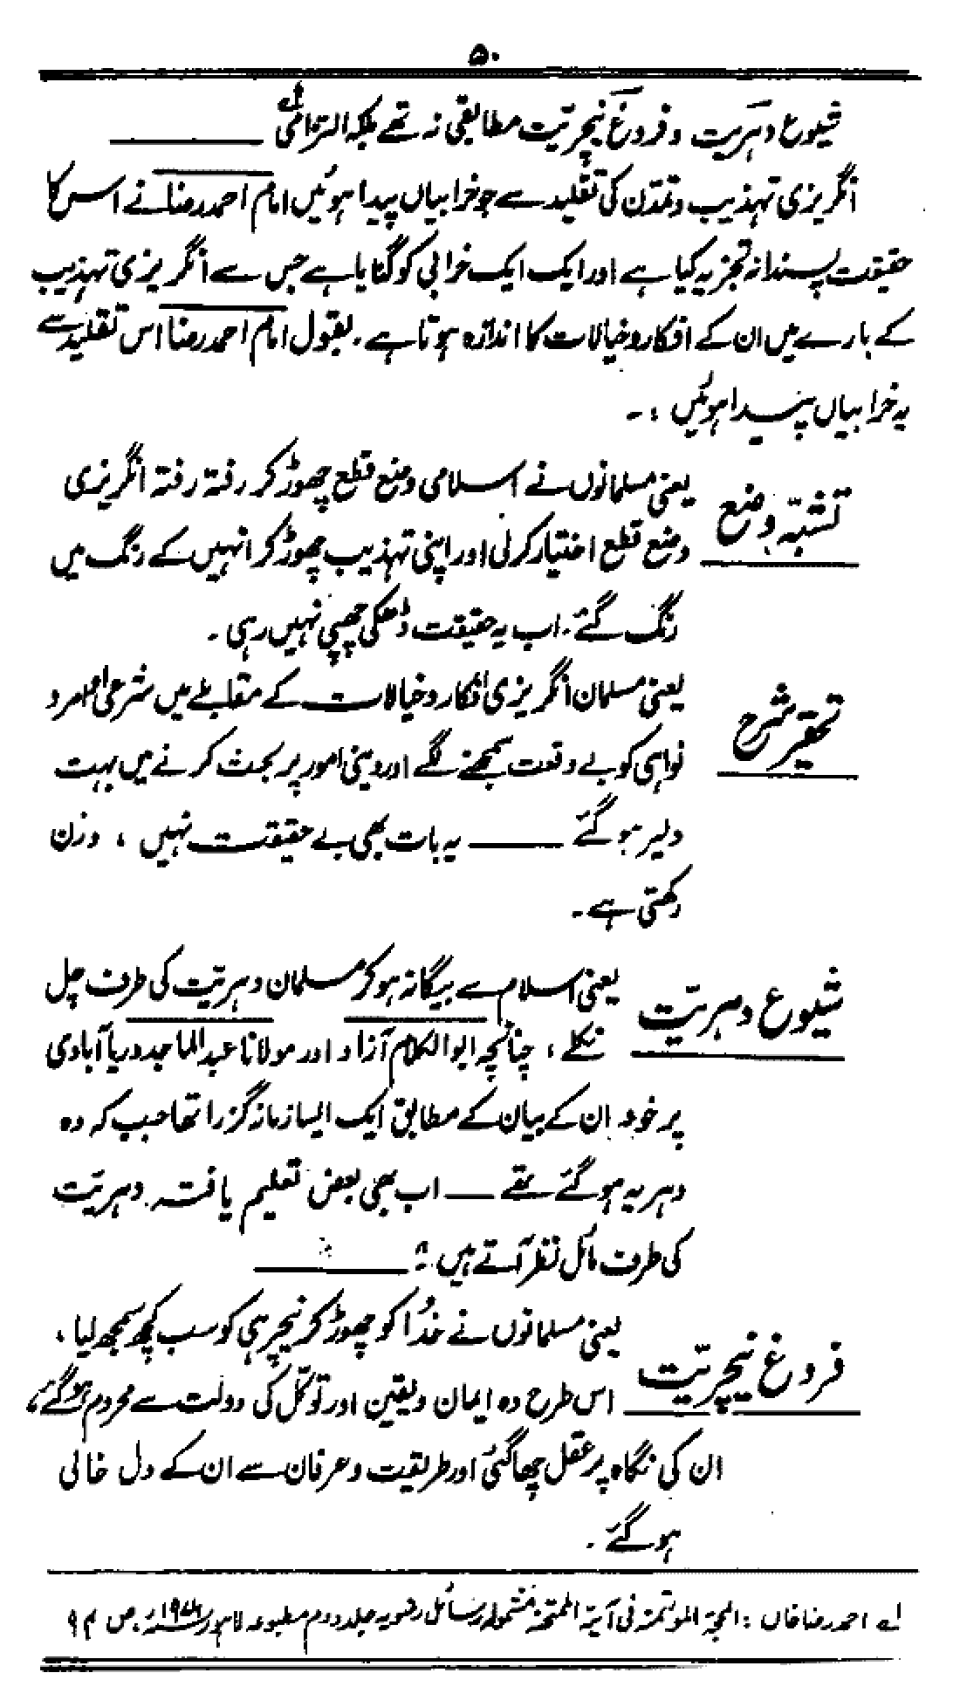 ۵۰
شیوع دہریت و فروغ نیچریّت مطابقی نہ تھے بلکہ التزامی لے
انگریزی تہذیب و تمدّن کی تقلید سے جو خرابیاں پیدا ہوئیں امام احمد رضا نے اس کا
حقیقت پسندانہ تجزیہ کیا ہے اور ایک ایک خرابی کو گنایا ہے جس سے انگریزی تہذیب
کے بارے میں ان کے افکار و خیالات کا اندازہ ہوتا ہے۔ بقول امام احمد رضا اس تقلید سے
یہ خرابیاں پیدا ہوئیں :۔
تشبّہ وضع یعنی مسلمانوں نے اسلامی وضع قطع چھوڑ کر رفتہ رفتہ انگریزی
وضع قطع اختیار کر لی اور اپنی تہذیب چھوڑ کر انہیں کے رنگ میں
رنگ گئے۔ اب یہ حقیقت ڈھکی چھپی نہیں رہی۔
تحقیر شرع یعنی مسلمان انگریزی افکار و خیالات کے مقابلے میں شرعی اوامر و
نواہی کو بے وقعت سمجھنے لگے اور دینی امور پر بحث کرنے میں بہت
دلیر ہو گئے ــــــ یہ بات بھی بے حقیقت نہیں ، وزن
رکھتی ہے۔
شیوع دہریّت یعنی اسلام سے بیگانہ ہو کر مسلمان دہریّت کی طرف چل
نکلے ، چنانچہ ابوالکلام آزاد اور مولانا عبدالماجد دریا آبادی
پر خود ان کے بیان کے مطابق ایک ایسا زمانہ گزرا تھا جب کہ وہ
دہریہ ہو گئے تھے ــــ اب بھی بعض تعلیم یافتہ دہریّت
کی طرف مائل نظر آتے ہیں ۔
فروغ نیچریّت یعنی مسلمانوں نے خُدا کو چھوڑ کر نیچر ہی کو سب کچھ سمجھ لیا ،
اس طرح وہ ایمان و یقین اور توکّل کی دولت سے محروم ہو گئے ،
ان کی نگاہ پر عقل چھا گئی اور طریقت و عرفان سے ان کے دل خالی
ہو گئے ۔
لے احمد رضا خاں : المحجۃ المؤتمنۃ فی آیۃ الممتحنۃ مشمولہ رسائل رضویہ جلد دوم مطبوعہ لاہور ص ۹۴